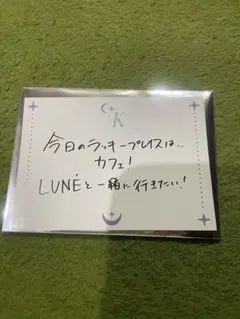 K
今日のラッキープレイスは…
カフェ!
LUNÉと一緒に行きたい!